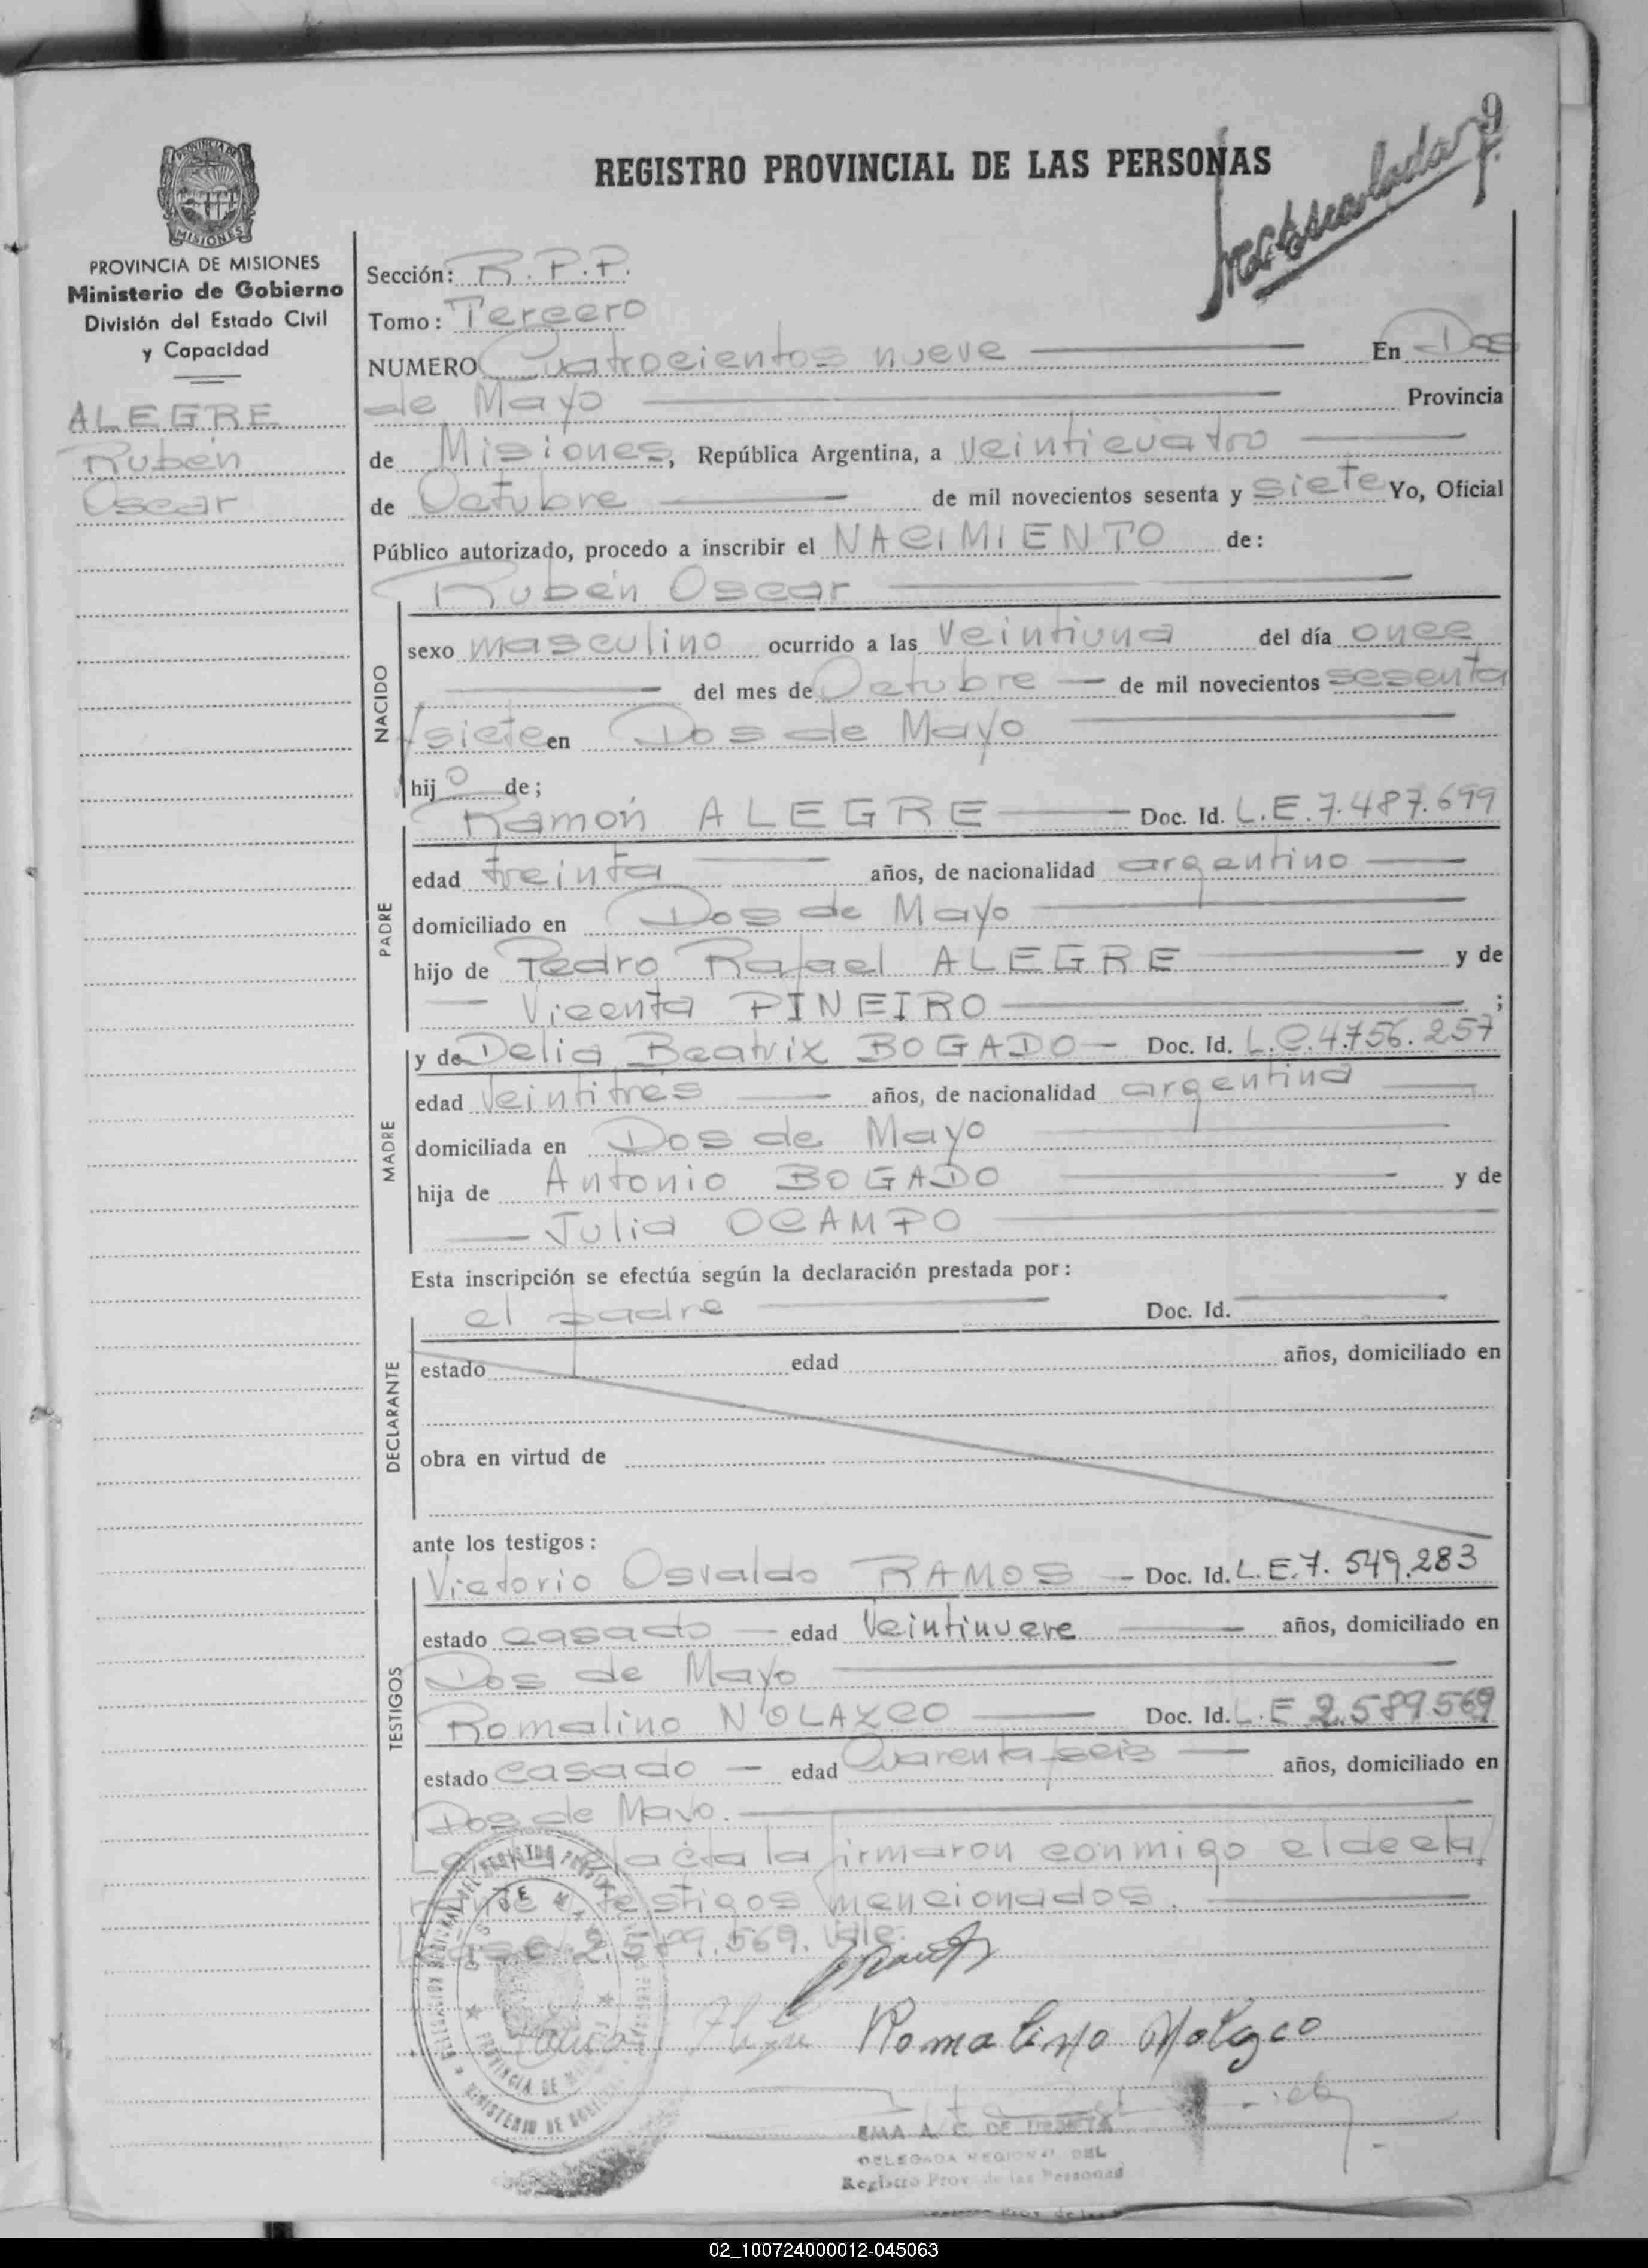 9
REGISTRO PROVINCIAL DE LAS PERSONAS
PROVINCIA DE
MISIONES
PROVINCIA DE MISIONES
Ministerio de Gobierno
División del Estado Civil
y Capacidad
ALEGRE
Rubén
Oscar
Sección: R.P.P.
Tomo: Tercero
NUMERO Cuatrocientos nueve En Dos
de Mayo Provincia
de Misiones, República Argentina, a veinticuatro
de Octubre de mil novecientos sesenta y siete Yo, Oficial
Público autorizado, procedo a inscribir el NACIMIENTO de:
Rubén Oscar
NACIDO
sexo masculino ocurrido a las Veintiuna del día once
del mes de Octubre de mil novecientos sesenta
y siete en Dos de Mayo
hij o de;
PADRE
Ramón ALEGRE Doc. Id. L.E.7.487.699
edad treinta años, de nacionalidad argentino
domiciliado en Dos de Mayo
hijo de Pedro Rafael ALEGRE y de
Vicenta PINEIRO ;
MADRE
y de Delia Beatrix BOGADO Doc. Id. L.C.4.756.257
edad Veintitrés años, de nacionalidad argentina
domiciliada en Dos de Mayo
hija de Antonio BOGADO y de
Julia OCAMPO
Esta inscripción se efectúa según la declaración prestada por:
DECLARANTE
el padre Doc. Id.
estado edad años, domiciliado en
obra en virtud de
ante los testigos:
TESTIGOS
Victorio Osvaldo RAMOS Doc. Id. L.E.7.549.283
estado casado edad Veintinueve años, domiciliado en
Dos de Mayo
Romalino NOLAZCO Doc. Id. L.E 2.589.569
estado casado edad Cuarenta y seis años, domiciliado en
Dos de Mayo.
Leída el acta la firmaron conmigo el decla
rante y testigos mencionados.
Léase: 2.589.569. Vale.
Romalino Nolazco
PROVINCIA DE
MINISTERIO DE
EMA A. C. DE
DELEGADA REGIONAL DEL
Registro Prov. de las Personas
02_100724000012-045063